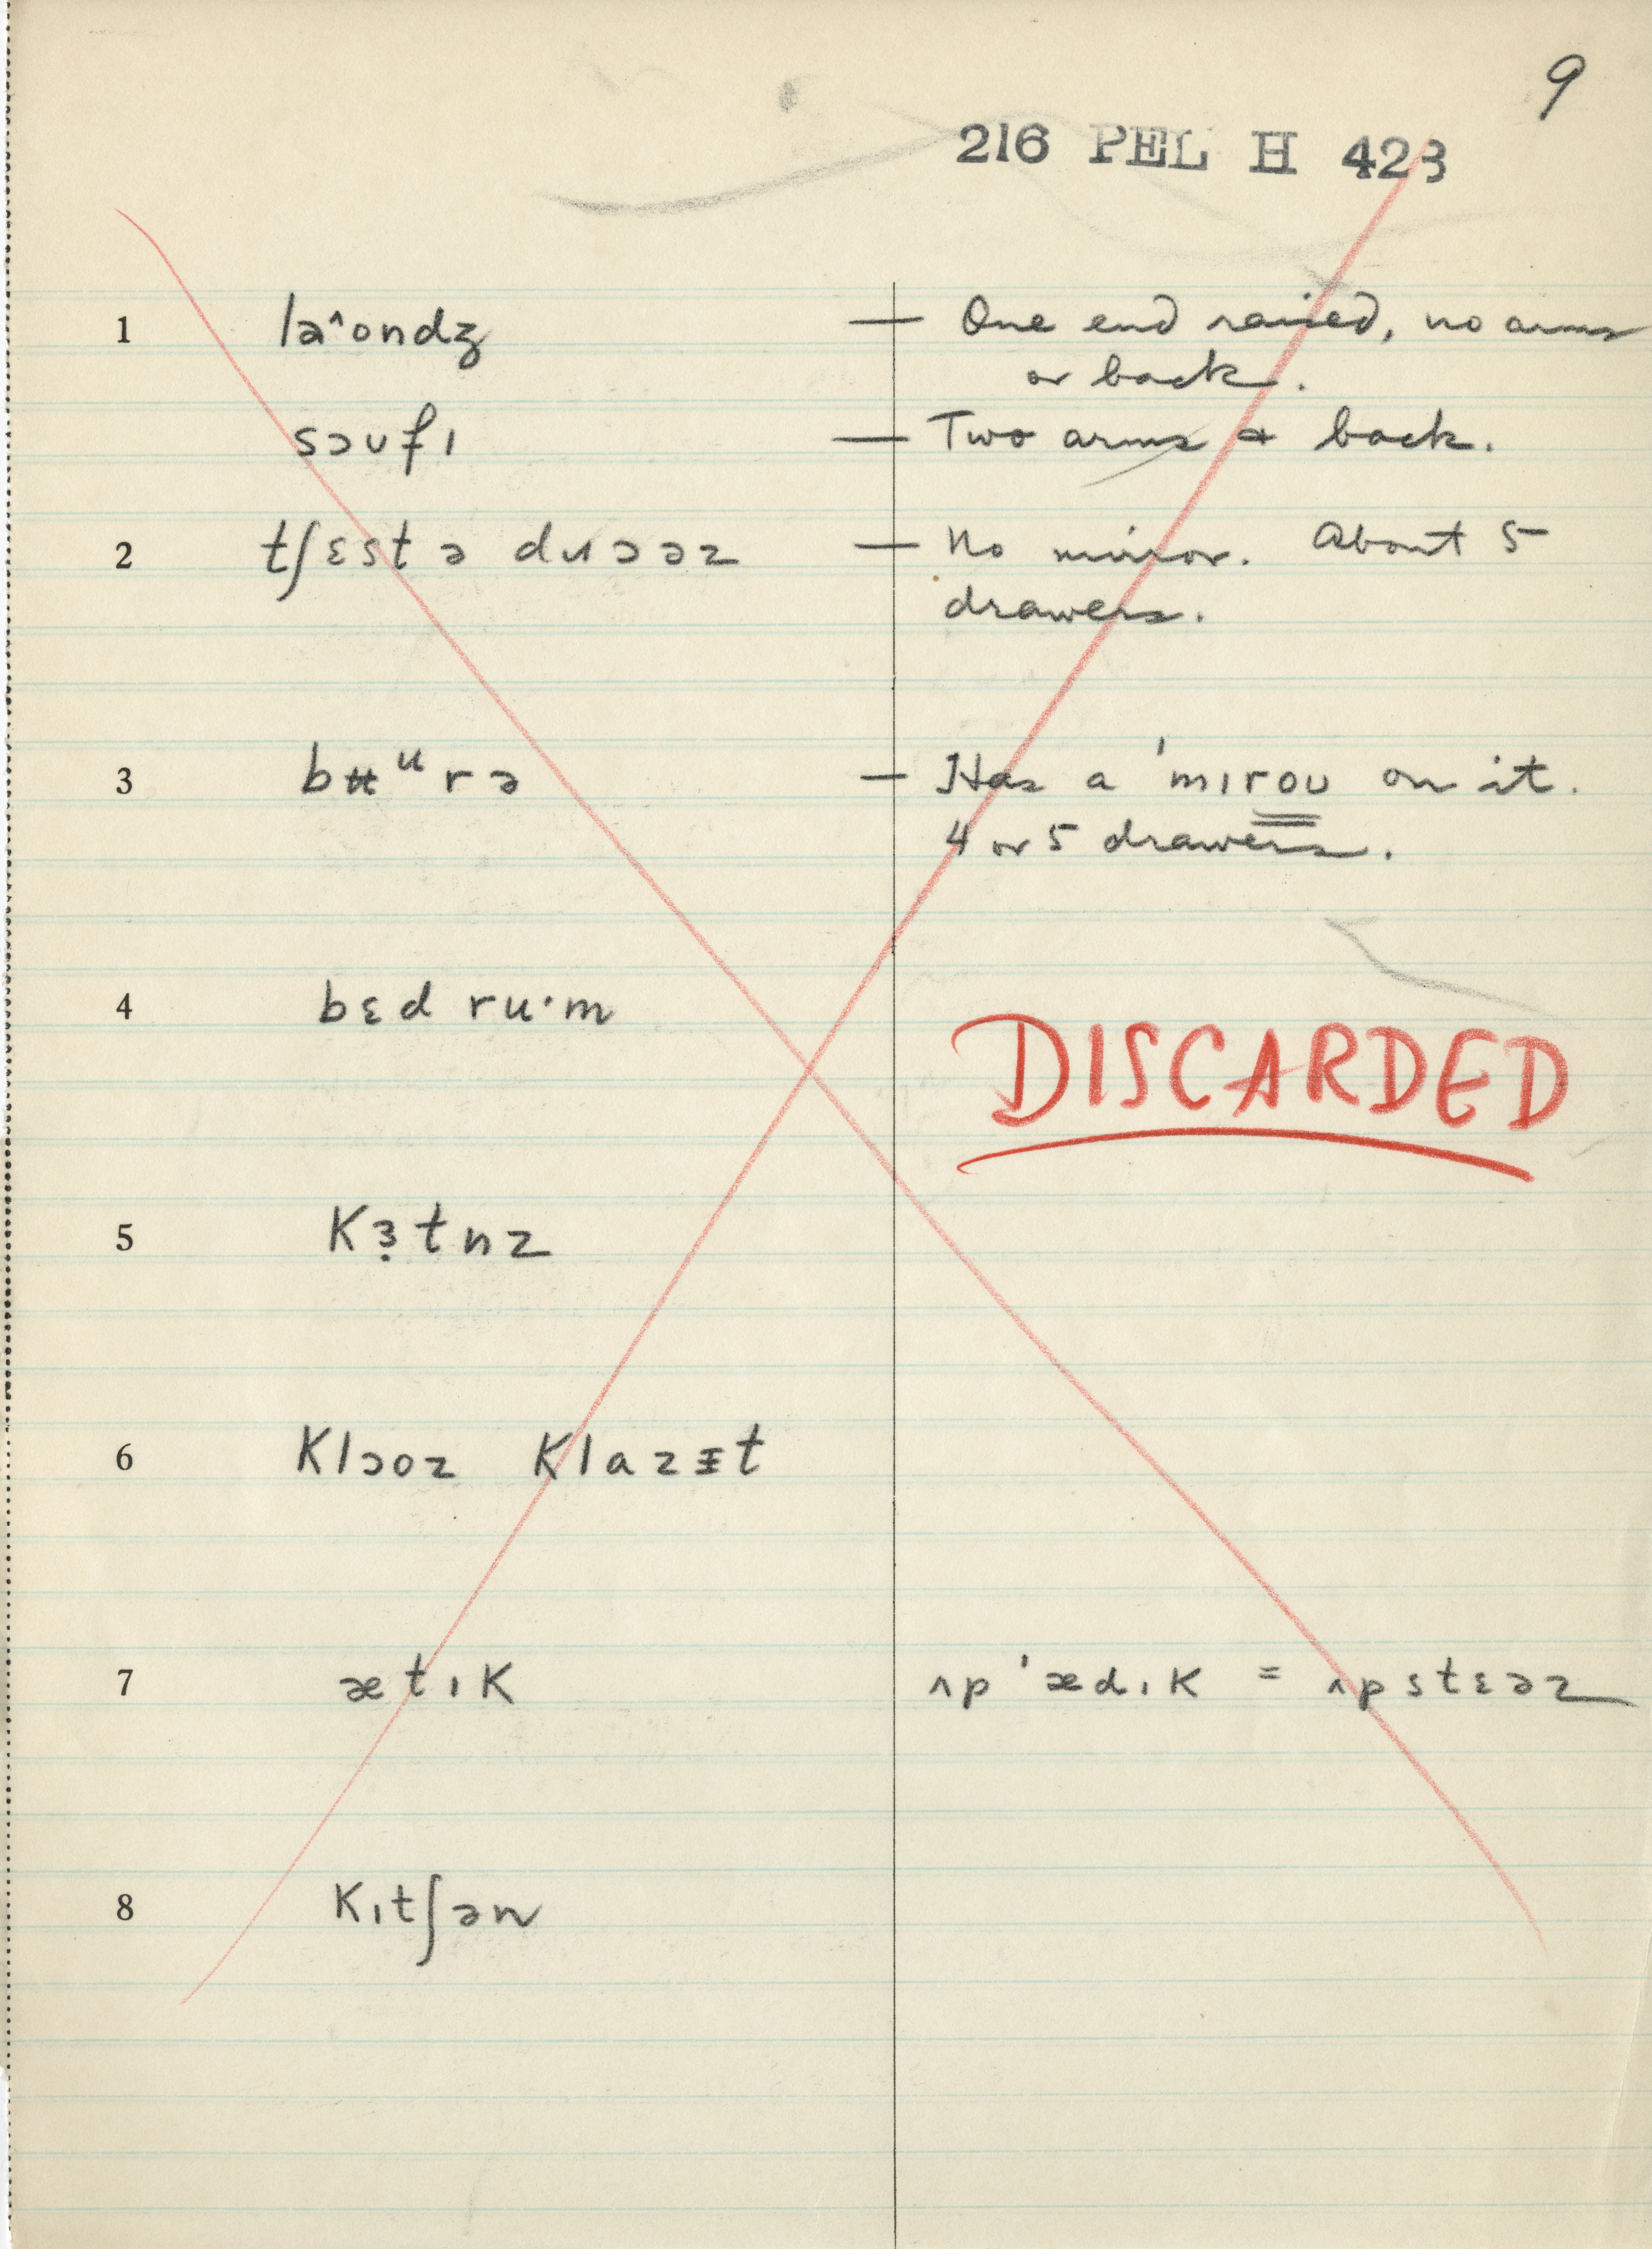 9
216 PEL H 423
1 laˆondʒ — One end raised, no arms
or back.
sɔʊfɪ — Two arms & back.
2 tʃɛst ə dɹɔəz — No mirror. About 5
drawers.
3 bʉᵘrə — Has a 'mɪroʊ on it.
4 or 5 drawers.
4 bɛd ru·m
DISCARDED
5 Kɜ̣tnz
6 Klɔoz Klazɪ̵t
7 ætɪK ʌp'ædɪK = ʌpstɛəz
8 Kɪtʃən